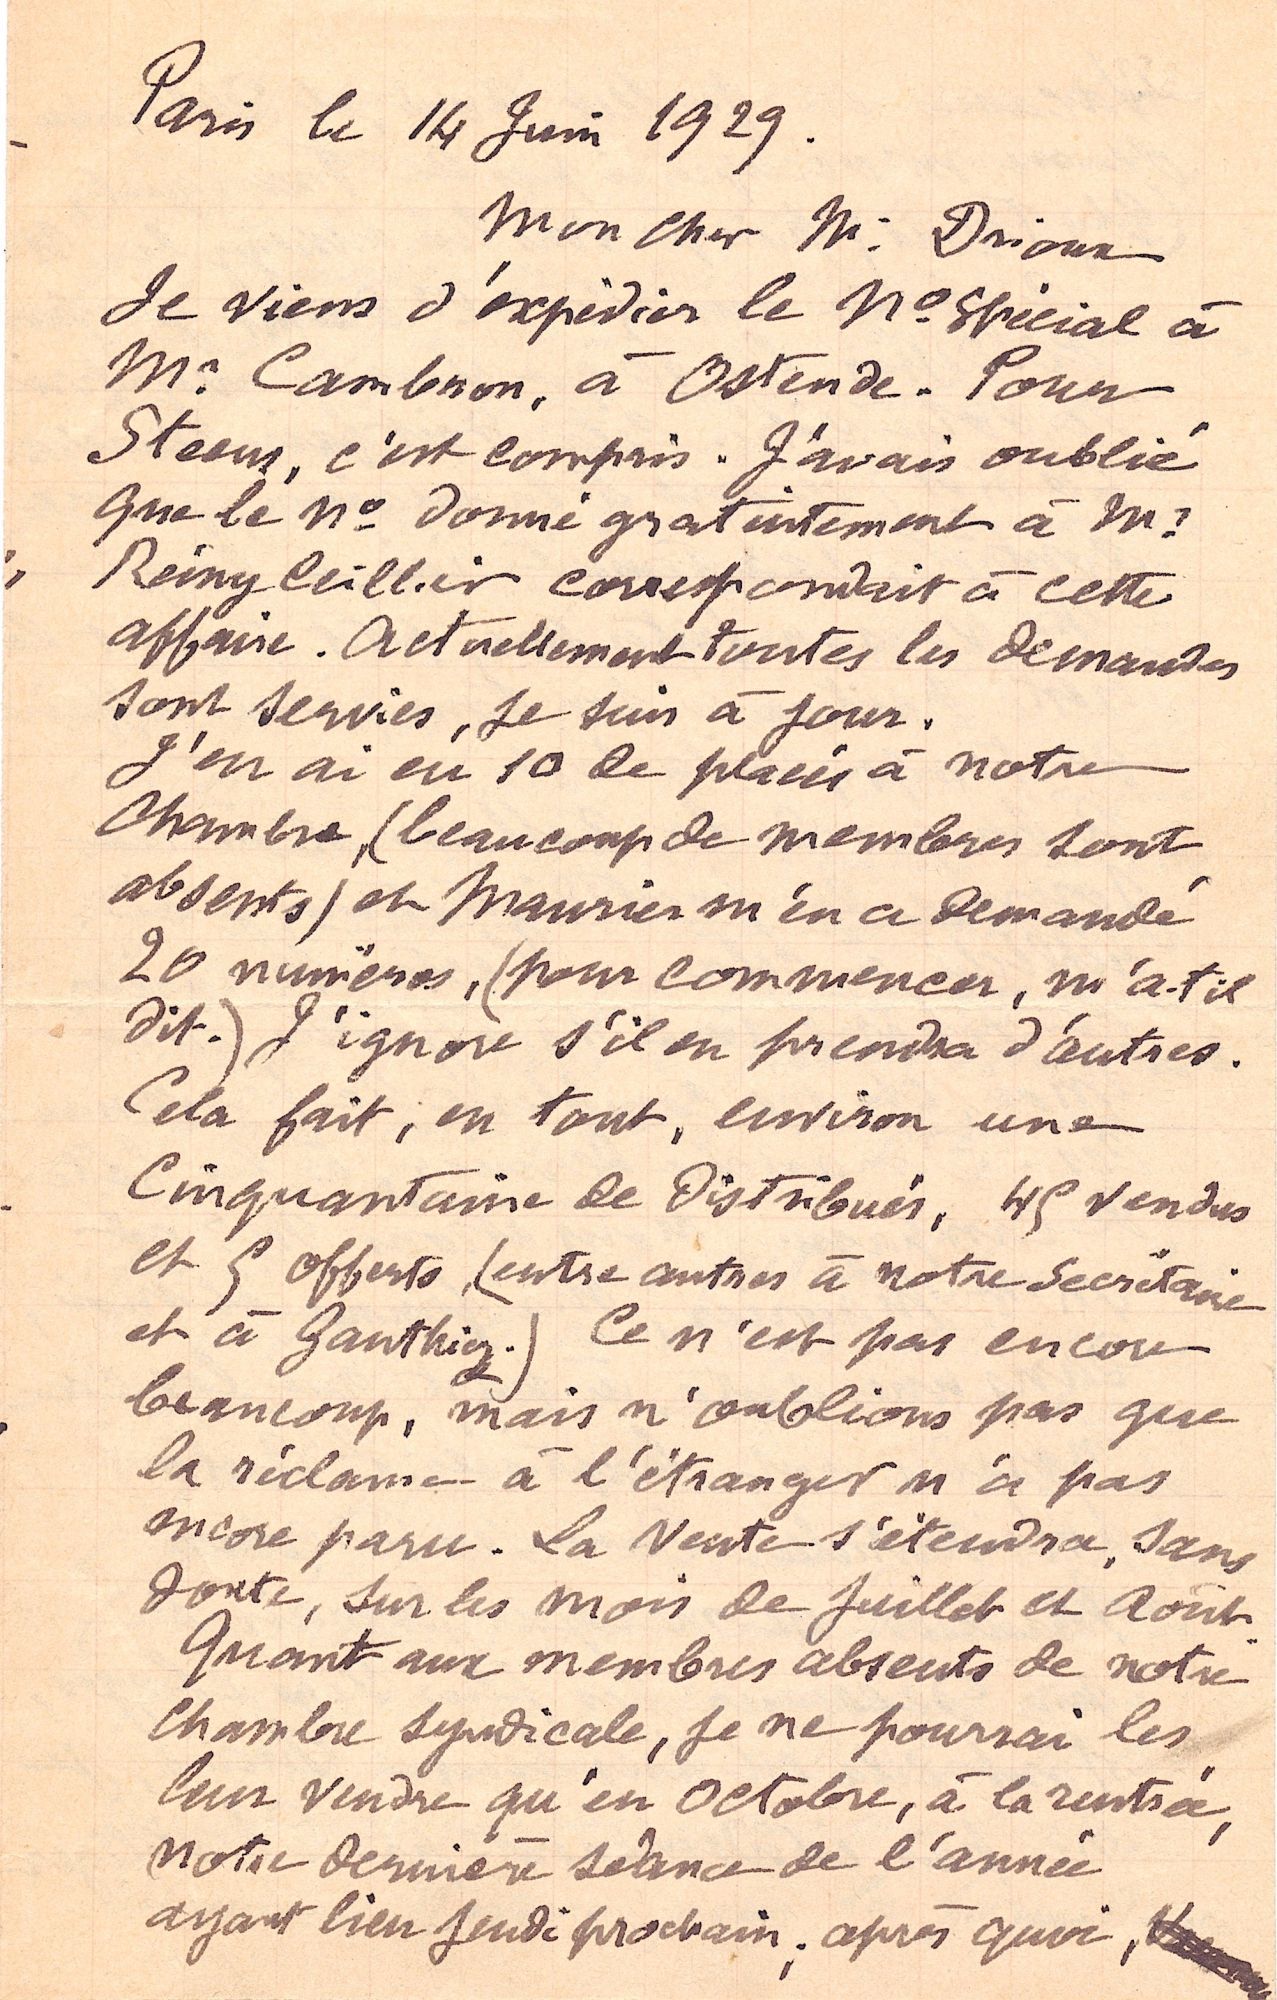 Paris le 14 Juin 1929.
Mon cher Mr. Drioux
Je viens d'expédier le No. Spécial à
Mr. Cambron, à Ostende. Pour
Steens, c'est compris. J'avais oublié
que le no donné gratuitement à Mr.
Rémy Ceillier correspondait à cette
affaire. Actuellement toutes les demandes
sont servies, je suis à jour.
J'en ai eu 10 de placés à notre
Chambre, (beaucoup de membres sont
absents) et Maurier m'en a demandé
20 numéros, (pour commencer, m'a-t il
dit.) J'ignore s'il en prendra d'autres.
Cela fait, en tout, environ une
Cinquantaine de distribués, 45 vendus
et 5 offerts, (entre autres à notre Secrétaire
et à Gauthiez.) Ce n'est pas encore
beaucoup, mais n'oublions pas que
la réclame à l'étranger n'a pas
encore paru. La Vente s'étendra, sans
doute, sur les mois de Juillet et Août.
Quant aux membres absents de notre
Chambre Syndicale, je ne pourrai les
leur vendre qu'en Octobre, à la rentrée,
notre dernière séance de l'année
ayant lieu Jeudi prochain; après quoi,